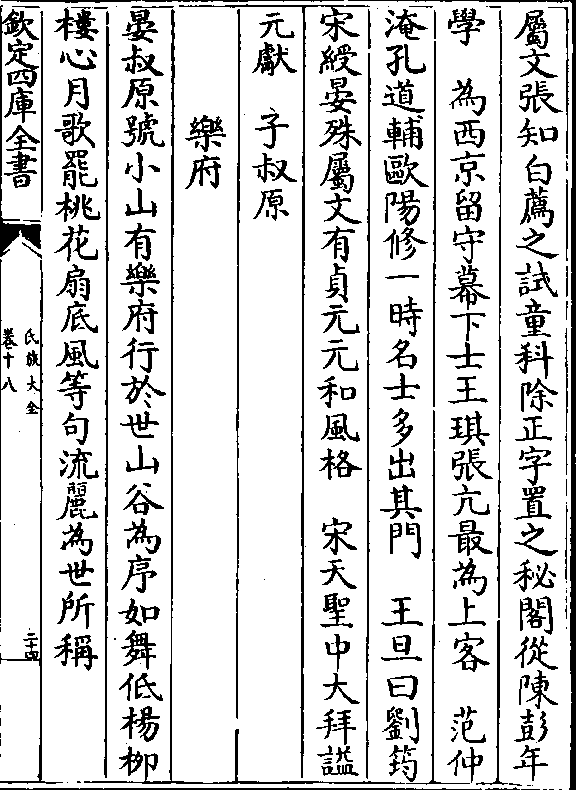 屬文張知白薦之試童科除正字置之秘閣從陳彭年
學　為西京留守幕下士王琪張亢最為上客　范仲
淹孔道輔歐陽修一時名士多出其門　王旦曰劉筠
宋綬晏殊屬文有貞元元和風格　宋天聖中大拜諡
元獻　子叔原
樂府
晏叔原號小山有樂府行於世山谷為序如舞低楊柳
樓心月歌罷桃花扇底風等句流麗為世所稱
欽定四庫全書
氏族大全
卷十八
二十四